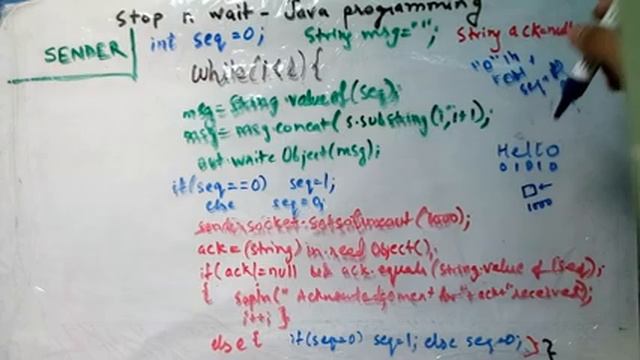 Stop n wait - Java programming
SENDER int seq=0; String msg=""; String ack=null
while(i<l){
msg=String.valueof(seq);
msg=msg.concat(s.substring(i,i+1);
out.write Object(msg);
if(seq==0) seq=1;
else seq=0;
sendersocket.setsotimeout(1000);
ack=(string) in.read Object();
if(ack!=null && ack.equals(string.value of(seq);
{ sopln(" Acknowledgement for"+ack+"received);
i++; }
else{ if(seq=0) seq=1; else seq=0; } }
Hello
01010
1000